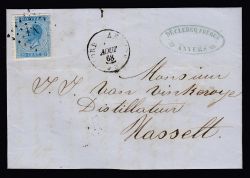 DE CLERCQ, FRÈRES
ANVERS
AOUT
68
Monsieur
J. J. Van Vinkeroye
Distillateur
Hasselt.